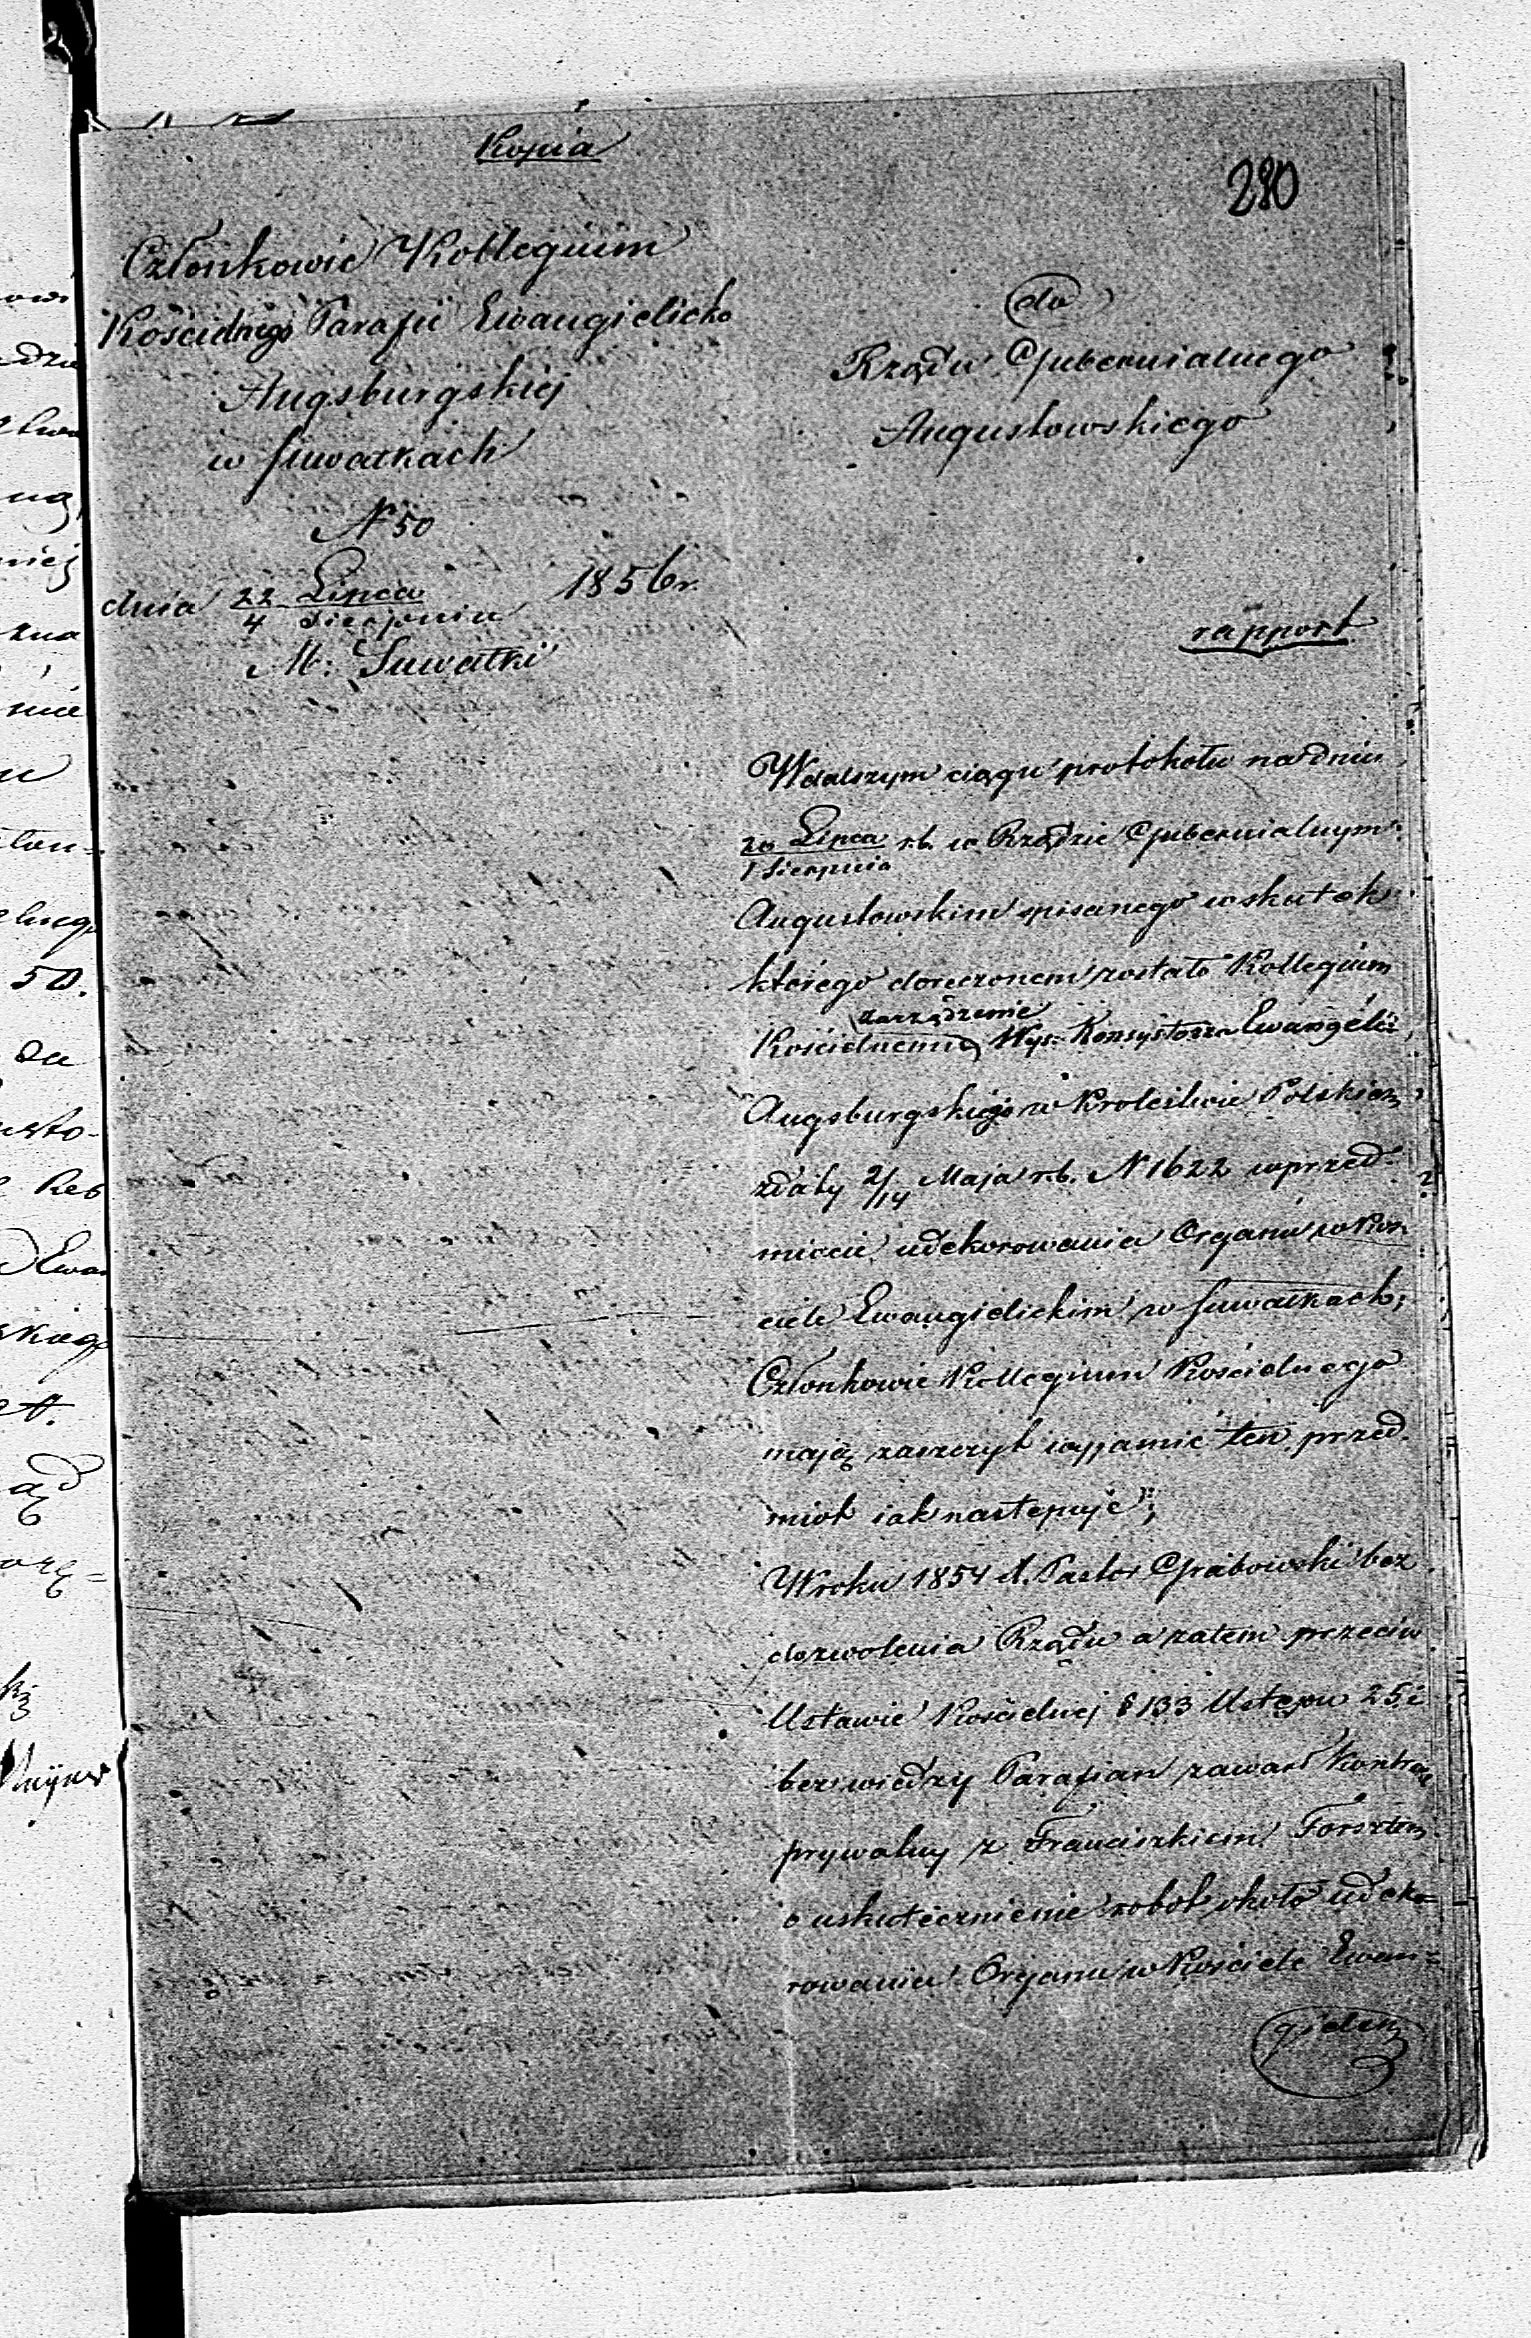 Kopia
280
Członkowie Kollegium
Kościelnego Parafii Ewangielicko
Augsburgskiej
w Suwałkach
N 50
dnia 22 Lipca / 4 Sierpnia 1856 r.
M: Suwałki
do
Rządu Gubernialnego
Augustowskiego
rapport
W dalszym ciągu protokołu na dniu
20 Lipca / 1 Sierpnia r.b. w Rządzie Gubernialnym
Augustowskim spisanego w skutek
którego doręczonem zostało Kollegium
zarządzenie
Kościelnemu Wys: Konsystorza Ewangelic:
Augsburgskiego w Krolestwie Polskiem
zdaty 2/14 Maja r.b. N 1622 w przed-
miocie udekorowania Organu w Koś
ciele Ewangielickim w Suwałkach;
Członkowie Kollegium Kościelnego
mają zaszczyt wyjaśnić ten przed
miot iak następuje;
W roku 1854 X. Pastor Grabowski bez
dozwolenia Rządu a zatem przeciw
Ustawie Kościelnej § 133 Ustępu 25 i
bez wiedzy Parafian zawarł Kontrakt
prywatny z Franciszkiem Forsztem
o uskutecznienie robot około udeko=
rowania Organu w Kościele Ewan=